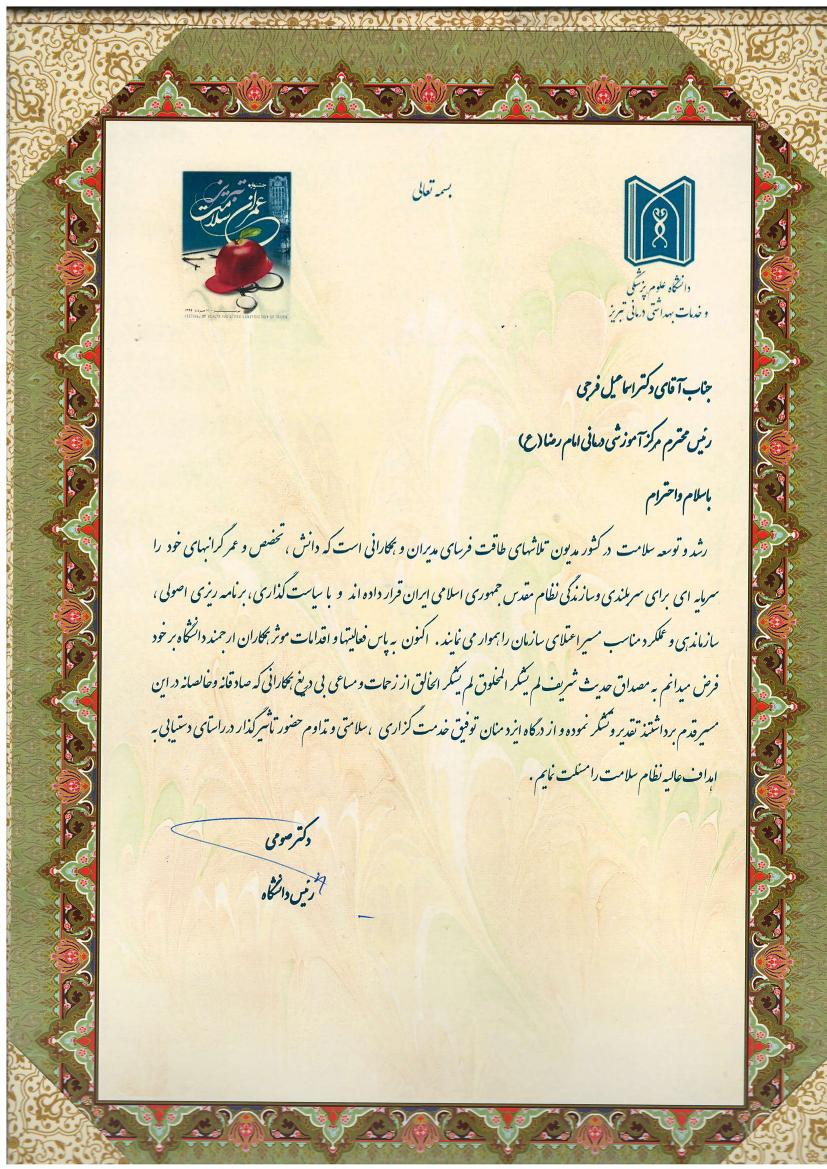 بسمه تعالی
جشنواره
عمران سلامت
تبریز
دانشگاه علوم پزشکی
و خدمات بهداشتی درمانی تبریز
جناب آقای دکتر اسماعیل فرجی
رئیس محترم مرکز آموزشی درمانی امام رضا (ع)
باسلام واحترام
رشد و توسعه سلامت در کشور مدیون تلاشهای طاقت فرسای مدیران و همکارانی است که دانش ، تخصص و عمر گرانبهای خود را
سرمایه ای برای سربلندی وسازندگی نظام مقدس جمهوری اسلامی ایران قرار داده اند و با سیاست گذاری، برنامه ریزی اصولی ،
سازماندهی و عملکرد مناسب مسیر اعتلای سازمان را هموار می نمایند . اکنون به پاس فعالیتها و اقدامات موثر همکاران ارجمند دانشگاه بر خود
فرض میدانم به مصداق حدیث شریف لم یشکر المخلوق لم یشکر الخالق از زحمات و مساعی بی دریغ همکارانی که صادقانه وخالصانه در این
مسیر قدم برداشتند تقدیر و تشکر نموده و از درگاه ایزد منان توفیق خدمت گزاری ، سلامتی و تداوم حضور تاثیرگذار در راستای دستیابی به
اهداف عالیه نظام سلامت را مسئلت نمایم .
دکتر صومی
رئیس دانشگاه